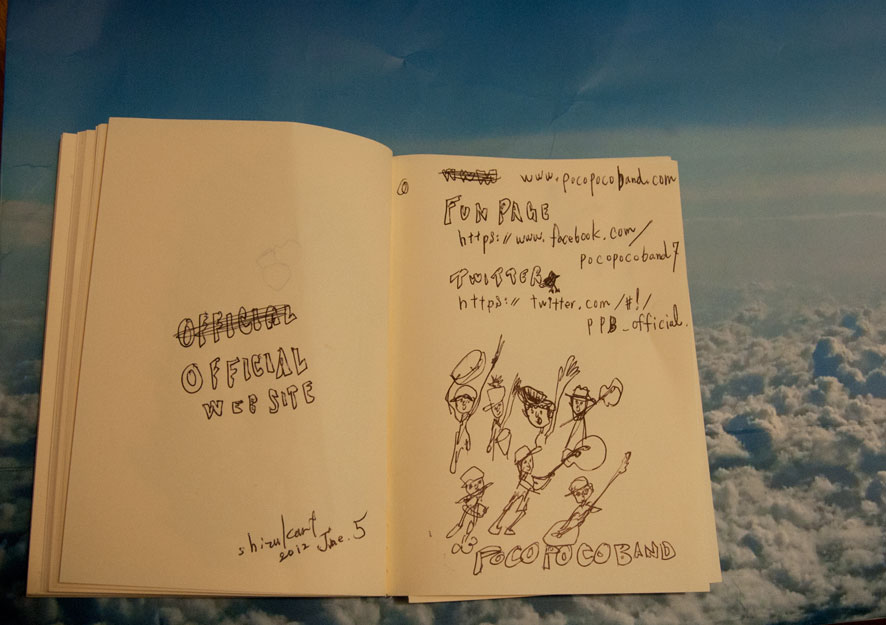 OFFICIAL
OFFICIAL
WEB SITE
shizukart
2012 June. 5
www. pocopocoband.com
FUN PAGE
https://www.facebook.com/
pocopocoband7
TWITTER
https://twitter.com/#!/
PPB_official.
POCO POCO BAND